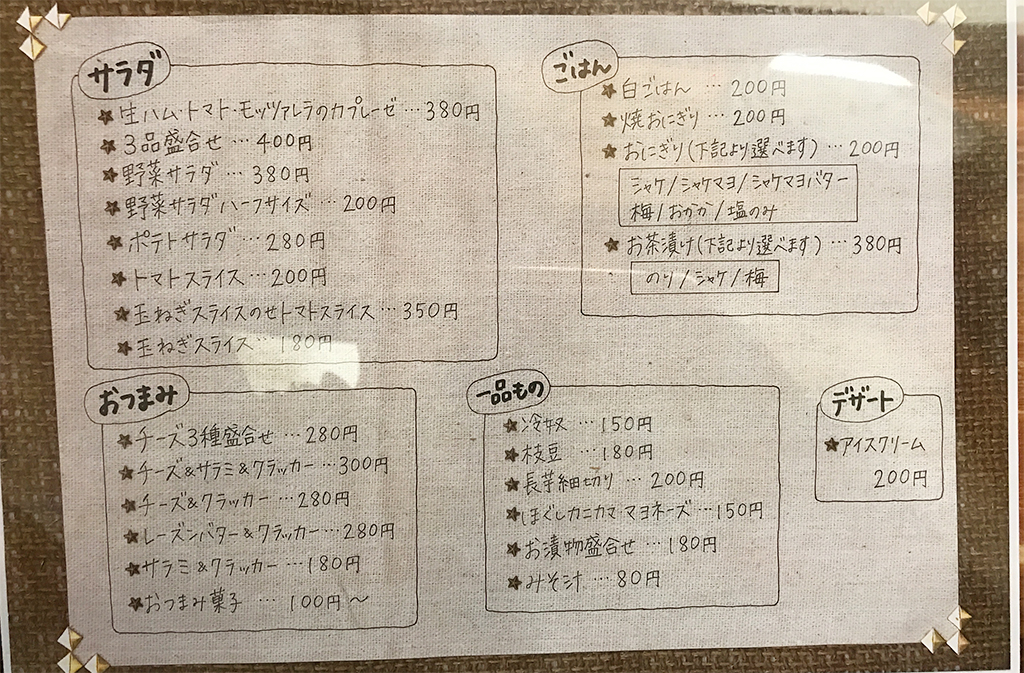 サラダ
生ハム・トマト・モッツァレラのカプレーゼ…380円
3品盛合せ…400円
野菜サラダ…380円
野菜サラダハーフサイズ…200円
ポテトサラダ…280円
トマトスライス…200円
玉ねぎスライスのせトマトスライス…350円
玉ねぎスライス…180円
ごはん
白ごはん…200円
焼おにぎり…200円
おにぎり(下記より選べます)…200円
シャケ/シャケマヨ/シャケマヨバター
梅/おかか/塩のみ
お茶漬け(下記より選べます)…380円
のり/シャケ/梅
おつまみ
チーズ3種盛合せ…280円
チーズ&サラミ&クラッカー…300円
チーズ&クラッカー…280円
レーズンバター&クラッカー…280円
サラミ&クラッカー…180円
おつまみ菓子…100円〜
一品もの
冷奴…150円
枝豆…180円
長芋細切り…200円
ほぐしカニカママヨネーズ…150円
お漬物盛合せ…180円
みそ汁…80円
デザート
アイスクリーム
200円